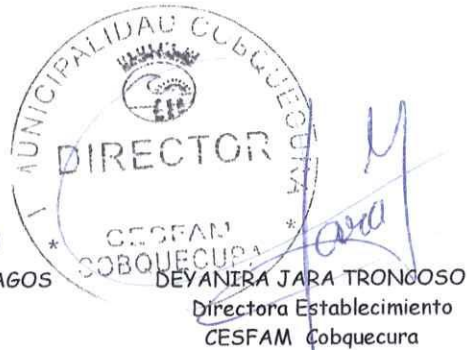 I MUNICIPALIDAD COBQUECURA
DIRECTOR
* CESFAM *
COBQUECURA
AGOS DEYANIRA JARA TRONCOSO
Directora Establecimiento
CESFAM Cobquecura